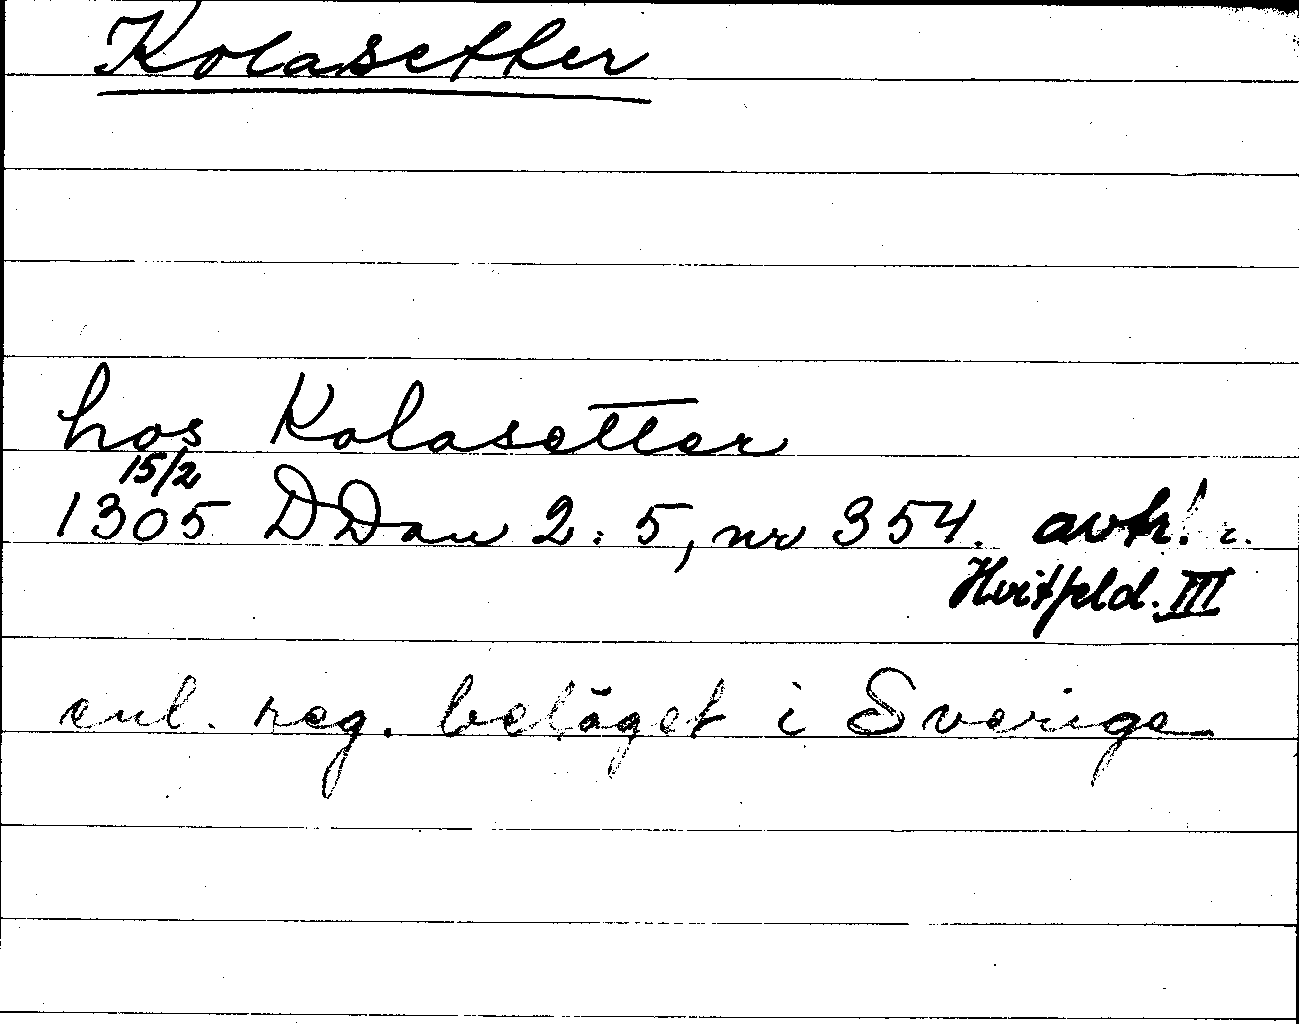 Kolasetter
hos Kolasetter
15/2
1305 DDan 2:5, nr 354. avtr. i
Hvitfeld. III
enl. reg. beläget i Sverige